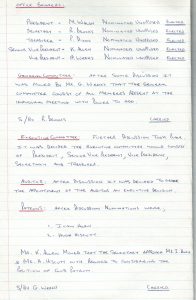 OFFICE BEARERS
PRESIDENT - M. WALSH NOMINATED UNOPPOSED ELECTED
SECRETARY - R. DENNIS NOMINATED UNOPPOSED ELECTED
TREASURER - P. NOMINATED UNOPPOSED ELECTED
SENIOR VICE PRESIDENT - K. ALLEN NOMINATED UNOPPOSED ELECTED
VICE PRESIDENT - NOMINATED UNOPPOSED ELECTED
GENERAL COMMITTEE : AFTER SOME DISCUSSION IT
WAS MOVED BY MR G. WEEKS THAT THE GENERAL
COMMITTEE CONSIST OF ALL MEMBERS PRESENT AT THE
INAUGURAL MEETING WITH POWER TO ADD.
S/BY R. DENNIS CARRIED
EXECUTIVE COMMITTEE : FURTHER DISCUSSION TOOK PLACE
IT WAS DECIDED THE EXECUTIVE COMMITTEE WOULD CONSIST
OF PRESIDENT, SENIOR VICE PRESIDENT, VICE PRESIDENT,
SECRETARY AND TREASURER.
AUDITOR : AFTER DISCUSSION IT WAS DECIDED TO LEAVE
THE APPOINTMENT OF THE AUDITOR AN EXECUTIVE DECISION.
PATRONS : AFTER DISCUSSION NOMINATIONS WERE,
1. ALLAN
2. HUGH
MR. K. ALLEN MOVED THAT THE SECRETARY APPROACH MR J. ALLAN
& MR. H. WITH REGARDS TO CONSIDERING THE
POSITION OF CLUB PATRON
S/BY G WEEKS CARRIED